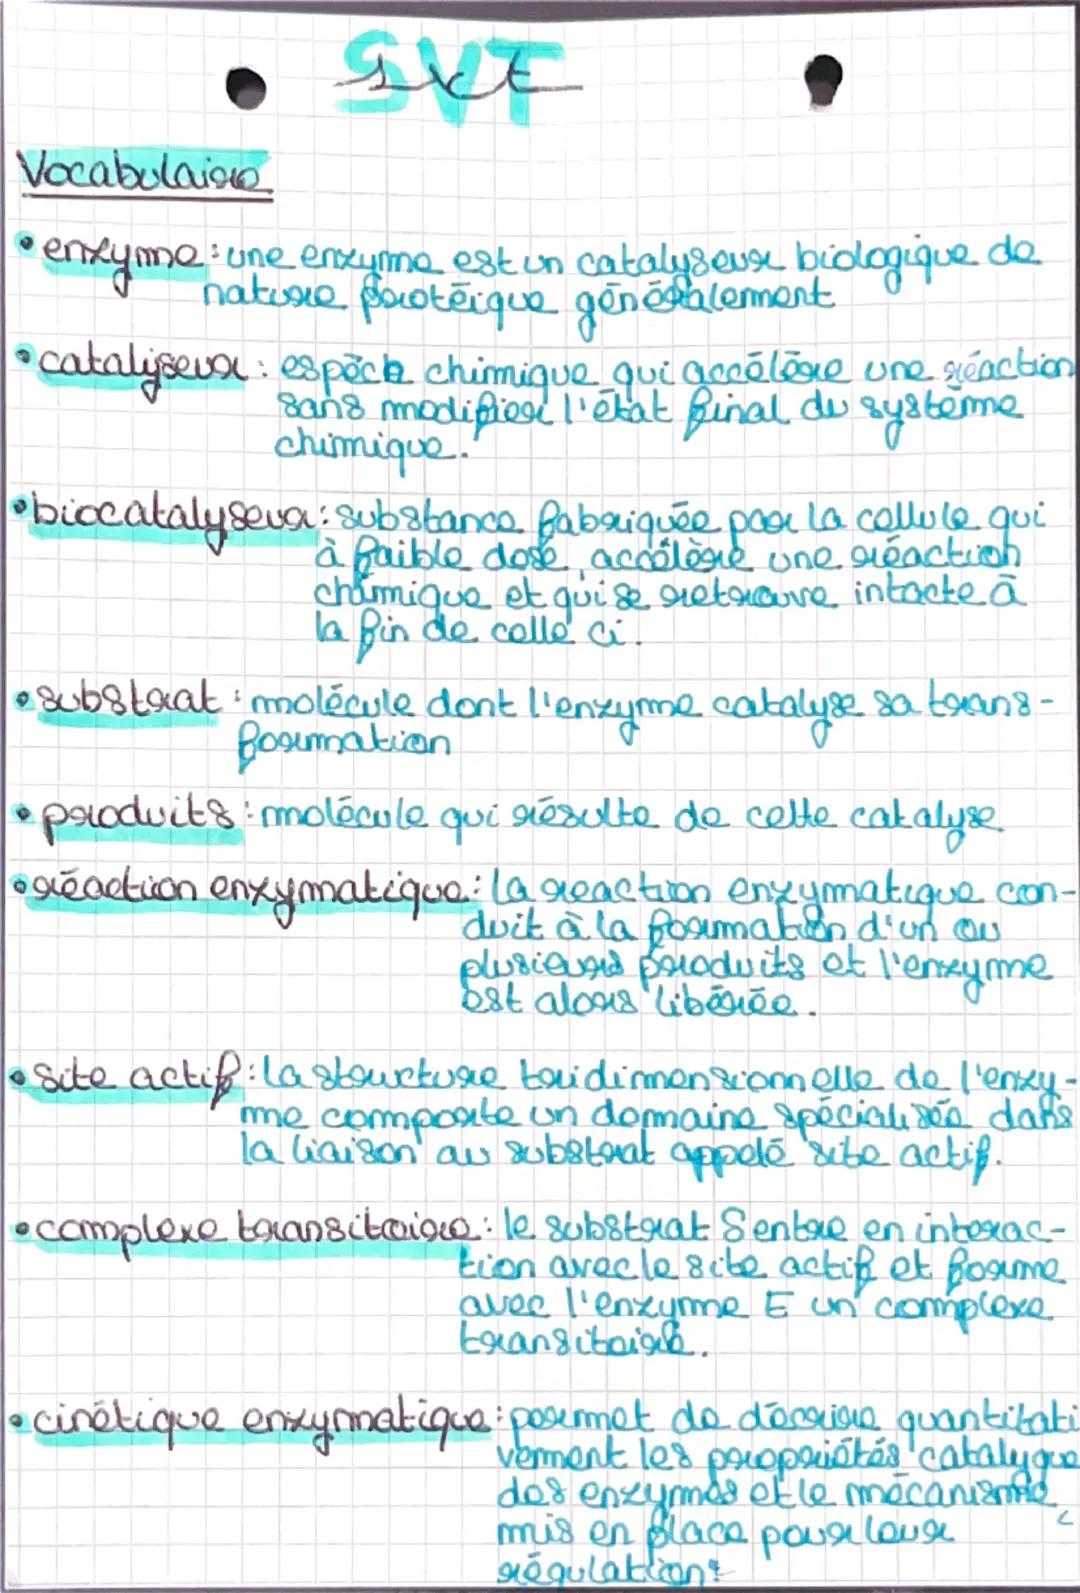 SVT
svt
Vocabulaire
• enzyme : une enzyme est un catalyseur biologique de
nature protéique généralement
• catalyseur : espèce chimique qui accélère une réaction
sans modifier l'état final du système
chimique.
• biocatalyseur : substance fabriquée par la cellule qui
à faible dose accélère une réaction
chimique et qui se retrouve intacte à
la fin de celle ci.
• substrat : molécule dont l'enzyme catalyse sa trans-
formation
• produits : molécule qui résulte de cette catalyse
• réaction enzymatique : la reaction enzymatique con-
duit à la formation d'un ou
plusieurs produits et l'enzyme
est alors libérée.
• site actif : la structure tridimensionnelle de l'enzy-
me comporte un domaine spécialisée dans
la liaison au substrat appelé site actif.
• complexe transitoire : le substrat S entre en interac-
tion avec le site actif et forme
avec l'enzyme E un complexe
transitoire.
• cinétique enzymatique : permet de décrire quantitati
vement les propriétés catalyque
des enzymes et le mécanisme
mis en place pour leur
régulation